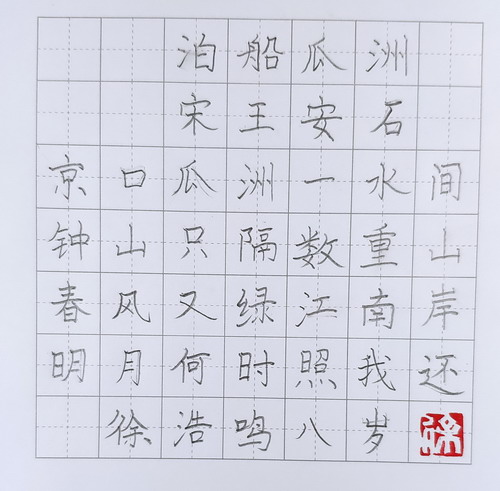 泊船瓜洲
宋王安石
京口瓜洲一水间
钟山只隔数重山
春风又绿江南岸
明月何时照我还
徐浩鸣八岁